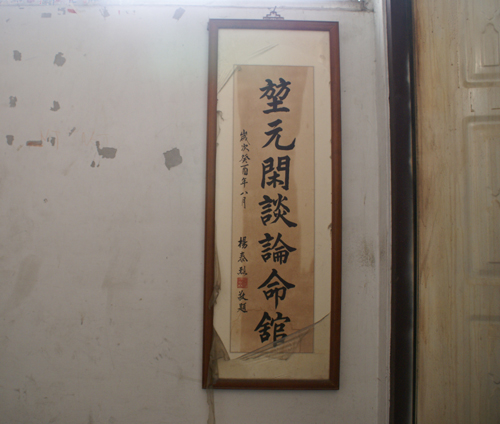 堃元閑談論命舘
歲次癸酉年八月
楊泰 敬題